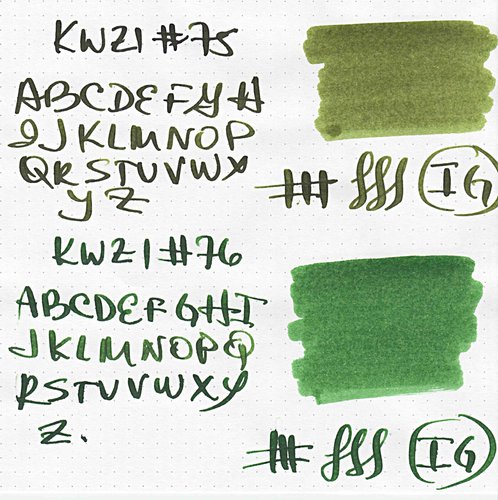 KWZI #75
ABCDEFGH
IJKLMNOP
QRSTUVWX
YZ
IG
KWZI #76
ABCDEFGHI
JKLMNOPQ
RSTUVWXY
Z.
IG